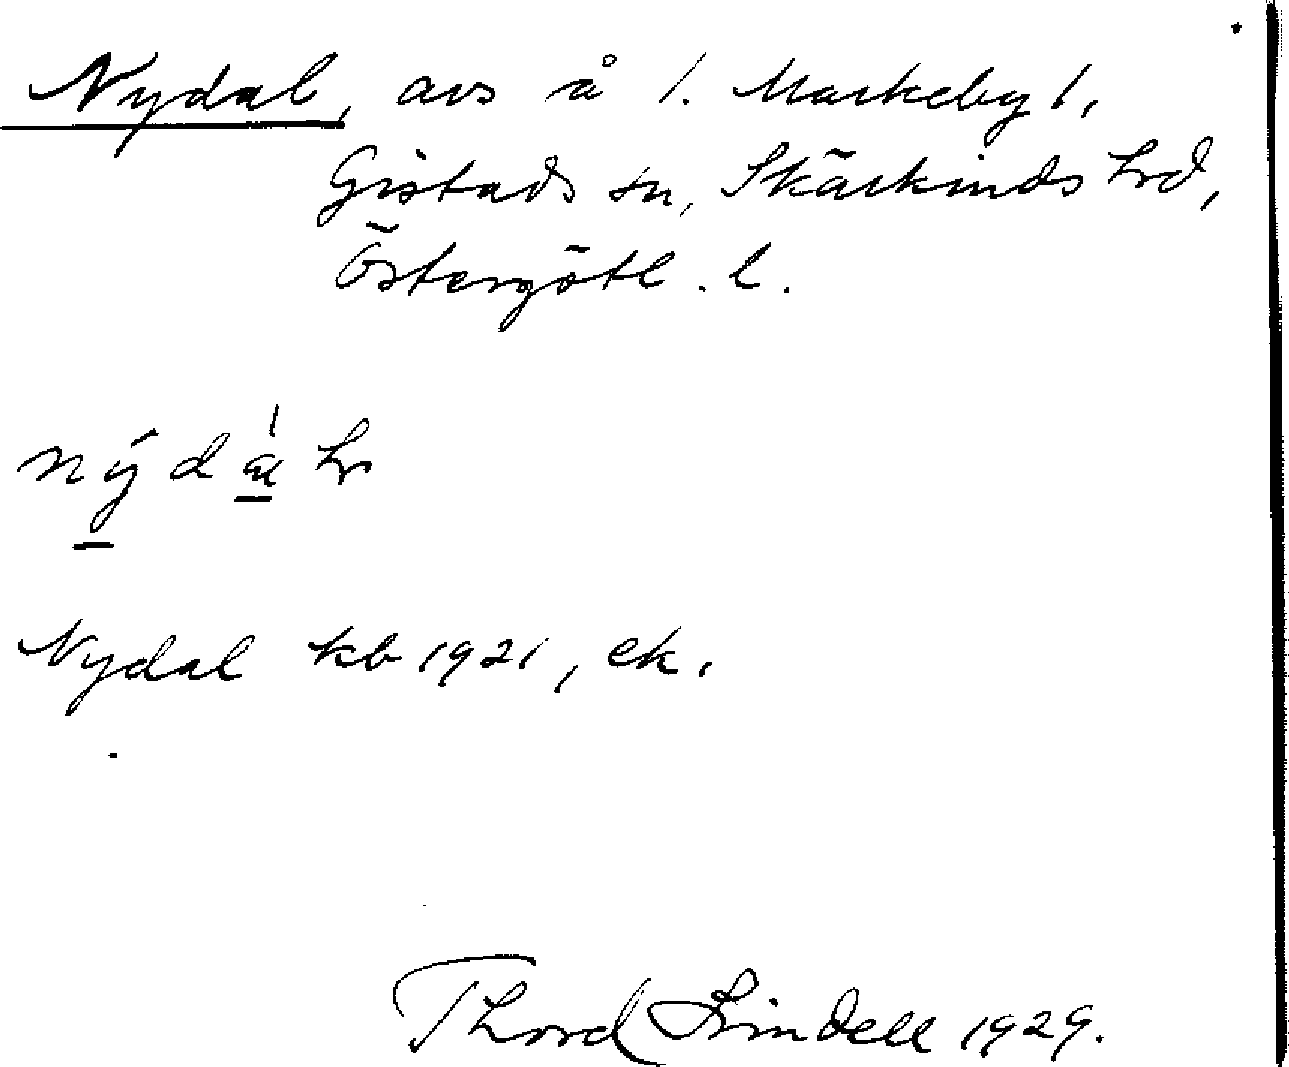 Nydal, avs å 1. Markeby 1,
Gistads sn, Skärkinds hrd,
Östergötl. l.
Nydal kb 1921, ek.
Thord Lindell 1929.